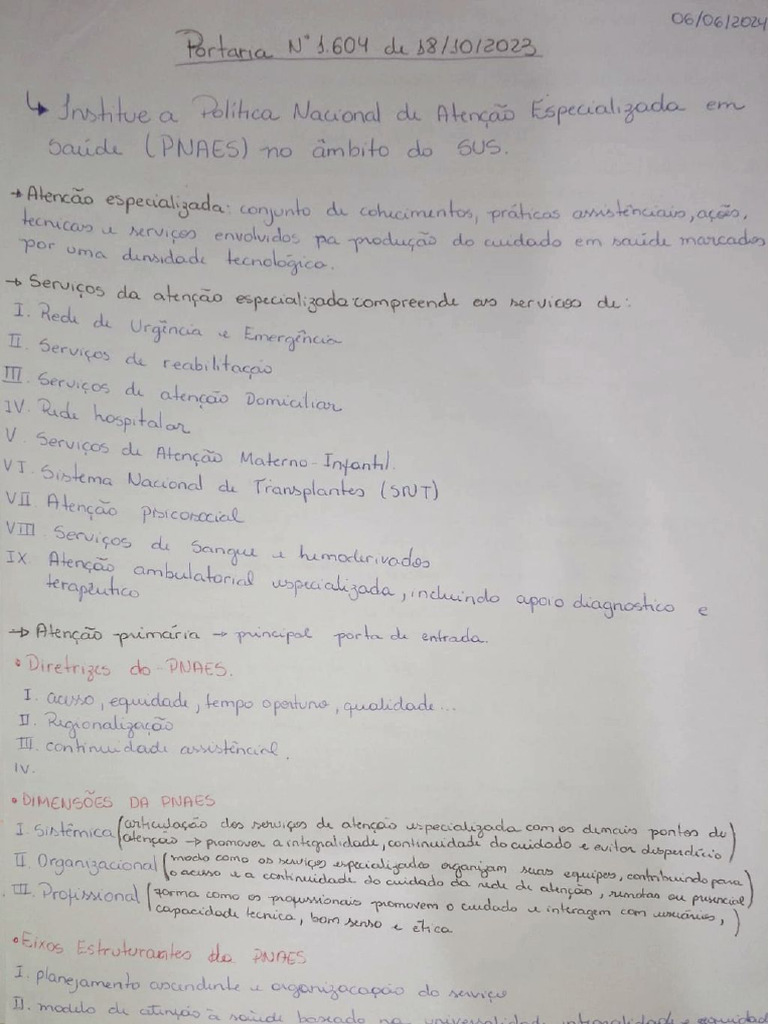 06/06/2024
Portaria Nº 1.604 de 18/10/2023
↳ Institue a Política Nacional de Atenção Especializada em
Saúde (PNAES) no âmbito do SUS.
→ Atencão especializada: conjunto de cohecimentos, práticas assistênciais, ação,
tecnicas e serviços envolvidos pa produção do cuidado em saúde marcados
por uma densidade tecnológica.
→ Serviços da atenção especializada compreende aos servicos de:
I. Rede de Urgência e Emergência
II. Serviços de reabilitação
III. Serviços de atenção Domiciliar
IV. Rede hospitalar
V. Serviços de Atenção Materno-Infantil.
VI. Sistema Nacional de Transplantes (SNT)
VII Atenção pisicosocial
VIII Serviços de Sangue e hemoderivados
IX Atenção ambulatorial especializada, incluindo apoio diagnostico e
terapêutico
→ Atenção primária → principal porta de entrada.
• Diretrizes do PNAES.
I. acesso, equidade, tempo oportuno, qualidade...
II. Regionalização
III. continuidade assistêncial.
IV.
• DIMENSÕES DA PNAES
I. Sistêmica (articulação dos serviços de atenção especializada com os demais pontos de
atenção → promover a integralidade, continuidade do cuidado e evitar desperdício)
II. Organizacional (modo como os serviços especializados organizam suas equipes, contribuindo para
o acesso e a continuidade do cuidado da rede de atenção, remotas ou presencial)
III. Profissional (forma como os profissionais promovem o cuidado e interagem com usuários,
capacidade tecnica, bom senso e ética)
• Eixos Estruturantes da PNAES
I. planejamento ascendente e organizacação do serviço
II. modelo de atenção à saúde baseado na universalidade, integralidade e equidad